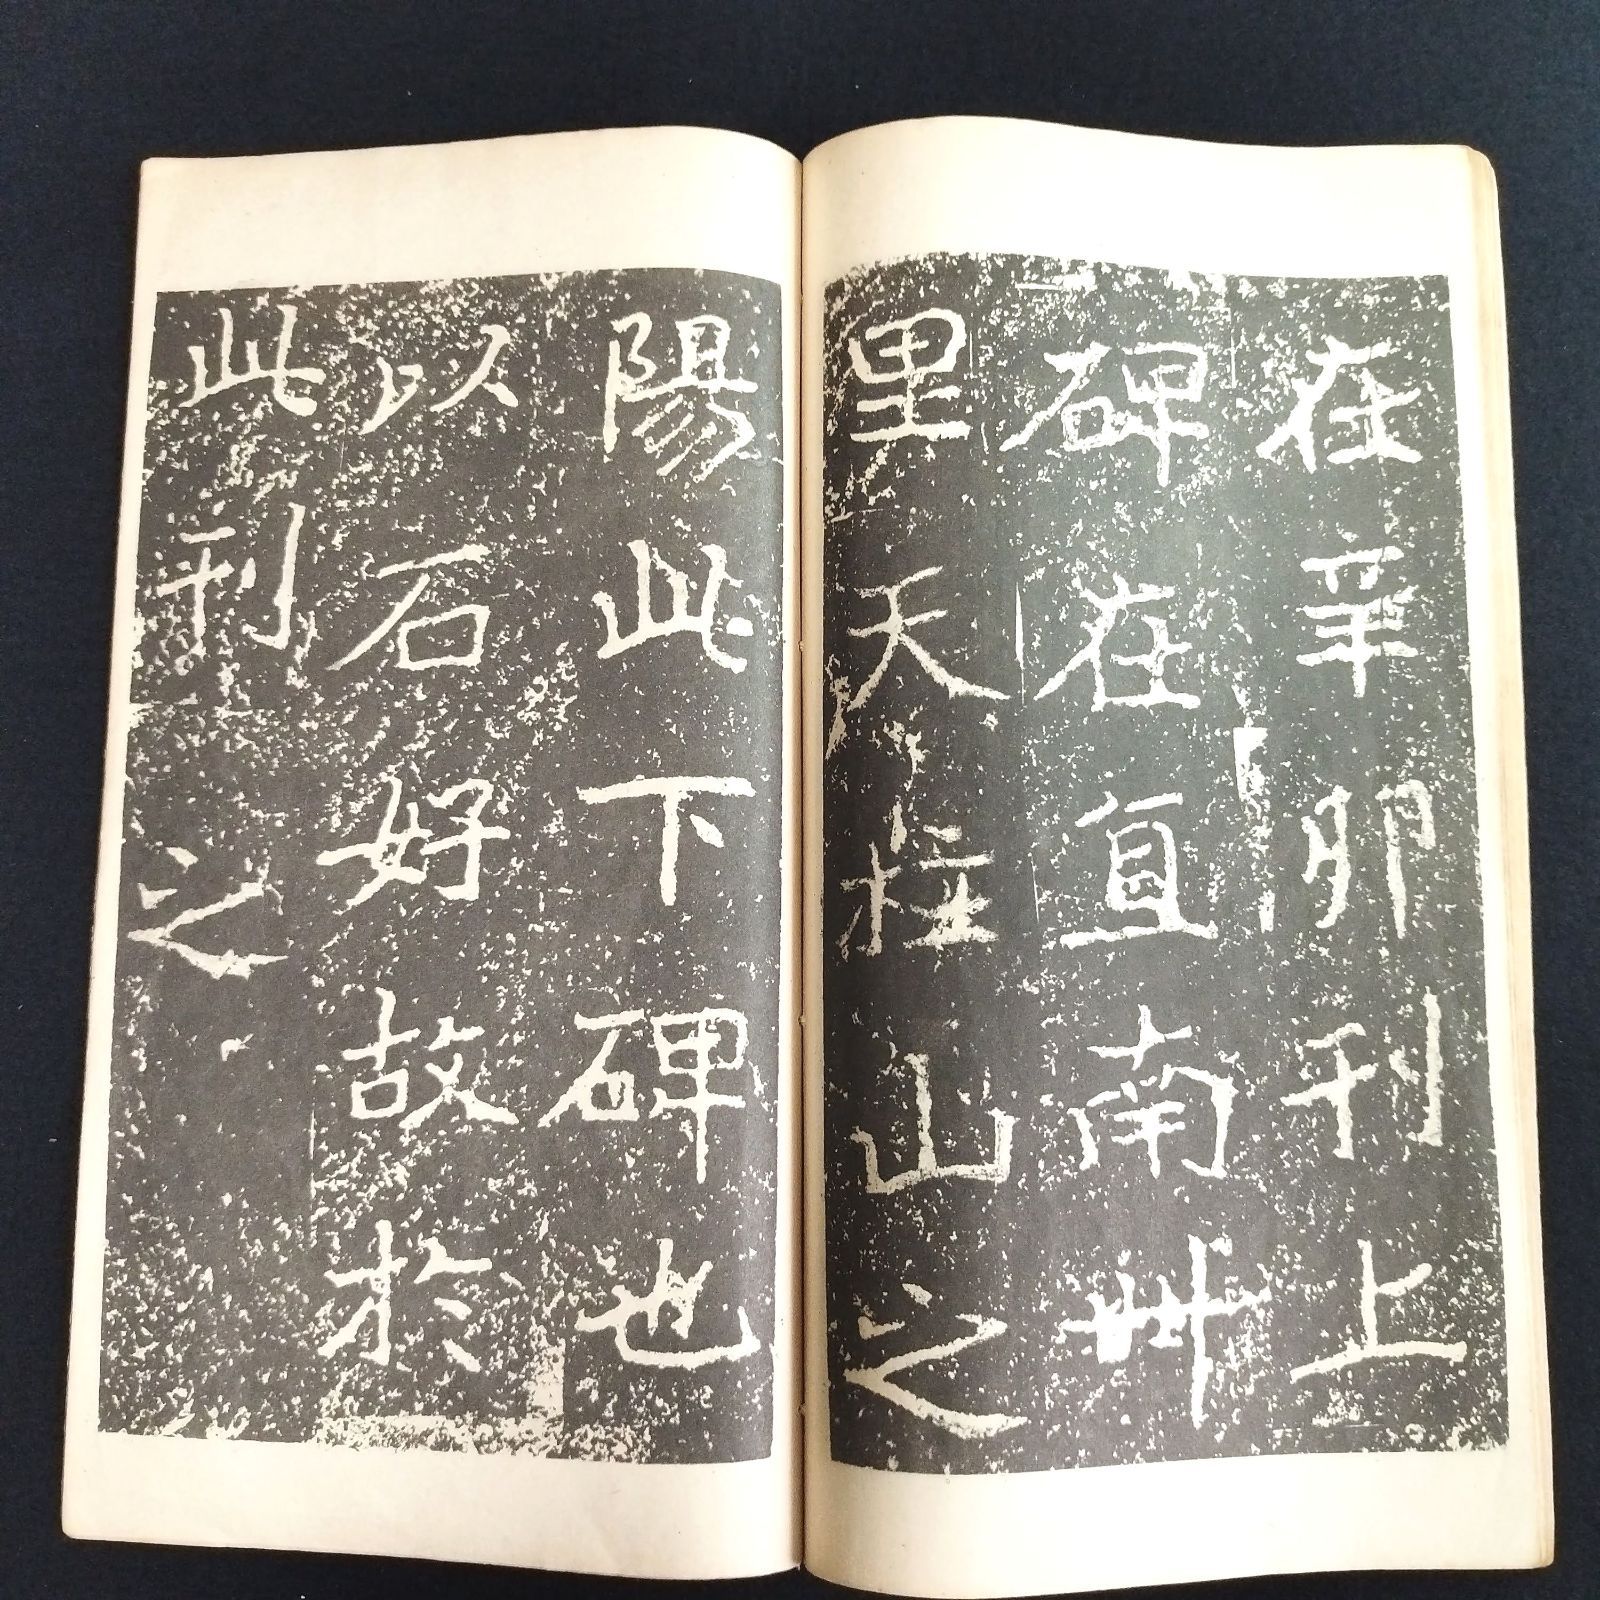 在辛卯刊上
碑在直南卌
里天柱山之
陽此下碑也
以石好故於
此刊之